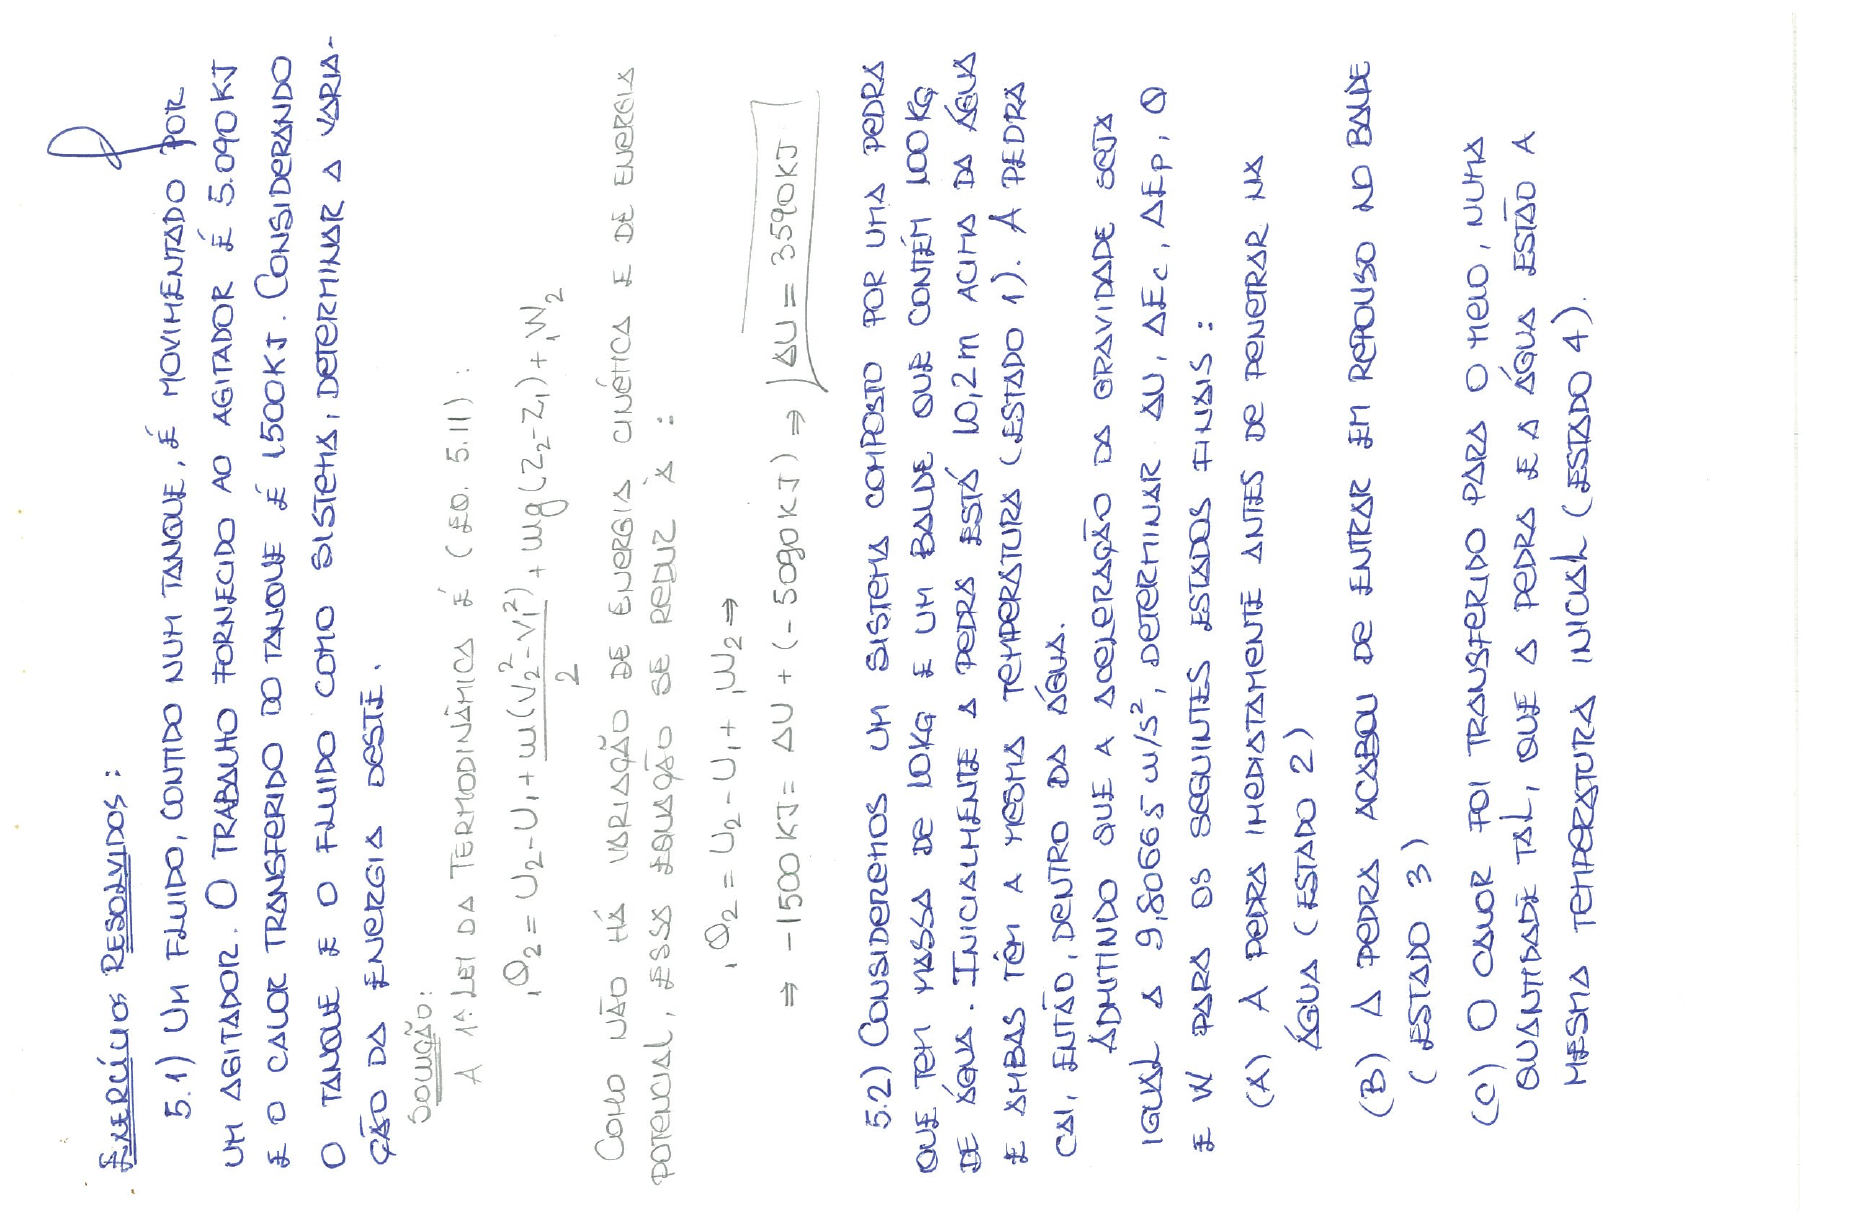 EXERCÍCIOS RESOLVIDOS:
5.1) UM FLUIDO, CONTIDO NUM TANQUE, É MOVIMENTADO POR
UM AGITADOR. O TRABALHO FORNECIDO AO AGITADOR É 5.090KJ
E O CALOR TRANSFERIDO DO TANQUE É 1500KJ. CONSIDERANDO
O TANQUE E O FLUIDO COMO SISTEMA, DETERMINAR A VARIA-
ÇÃO DA ENERGIA DESTE.
SOLUÇÃO:
A 1ª LEI DA TERMODINÂMICA É (EQ. 5.11):
₁Q₂ = U₂ - U₁ + m(V₂² - V₁²)/2 + mg(Z₂ - Z₁) + ₁W₂
COMO NÃO HÁ VARIAÇÃO DE ENERGIA CINÉTICA E DE ENERGIA
POTENCIAL, ESSA EQUAÇÃO SE REDUZ À:
₁Q₂ = U₂ - U₁ + ₁W₂ ⇒
⇒ -1500KJ = ΔU + (-5090KJ) ⇒ ΔU = 3590KJ
5.2) CONSIDEREMOS UM SISTEMA COMPOSTO POR UMA PEDRA
QUE TEM MASSA DE 10KG E UM BALDE QUE CONTÉM 100KG
DE ÁGUA. INICIALMENTE A PEDRA ESTÁ 10,2m ACIMA DA ÁGUA
E AMBAS TÊM A MESMA TEMPERATURA (ESTADO 1). A PEDRA
CAI, ENTÃO, DENTRO DA ÁGUA.
ADMITINDO QUE A ACELERAÇÃO DA GRAVIDADE SEJA
IGUAL A 9,80665 m/s², DETERMINAR ΔU, ΔEc, ΔEp, Q
E W PARA OS SEGUINTES ESTADOS FINAIS:
(A) A PEDRA IMEDIATAMENTE ANTES DE PENETRAR NA
ÁGUA (ESTADO 2)
(B) A PEDRA ACABOU DE ENTRAR EM REPOUSO NO BALDE
(ESTADO 3)
(C) O CALOR FOI TRANSFERIDO PARA O MEIO, NUMA
QUANTIDADE TAL, QUE A PEDRA E A ÁGUA ESTÃO A
MESMA TEMPERATURA INICIAL (ESTADO 4).